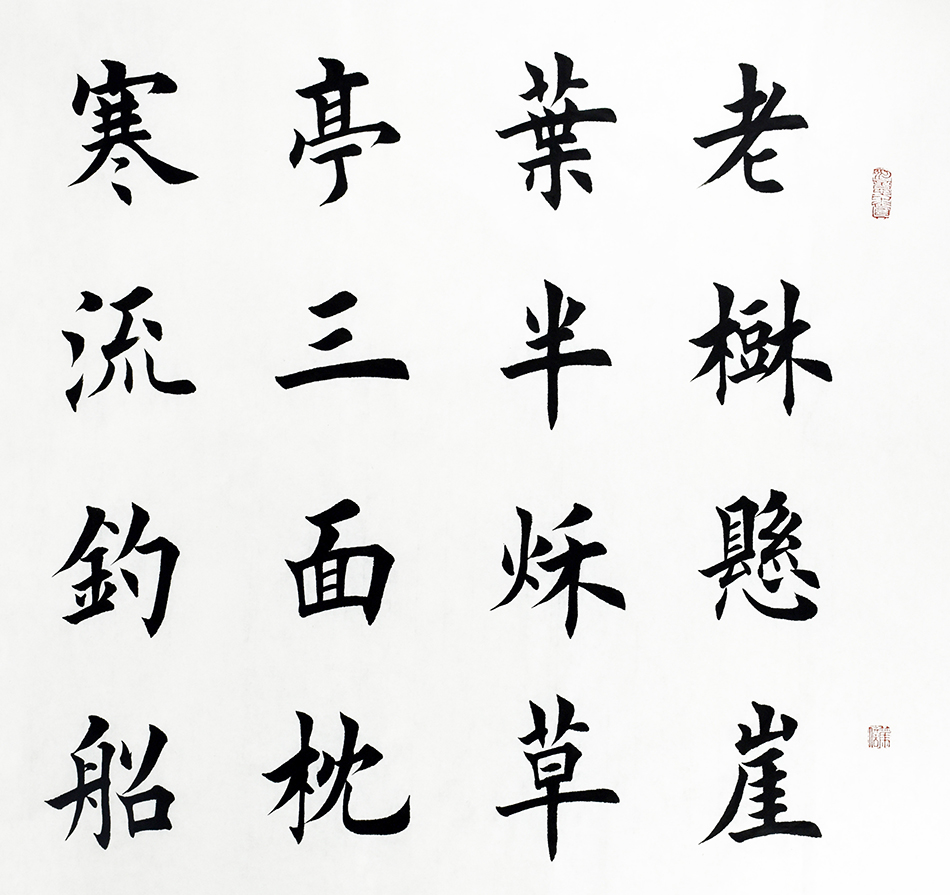 老樹懸崖
葉半秌草
亭三面枕
寒流釣船